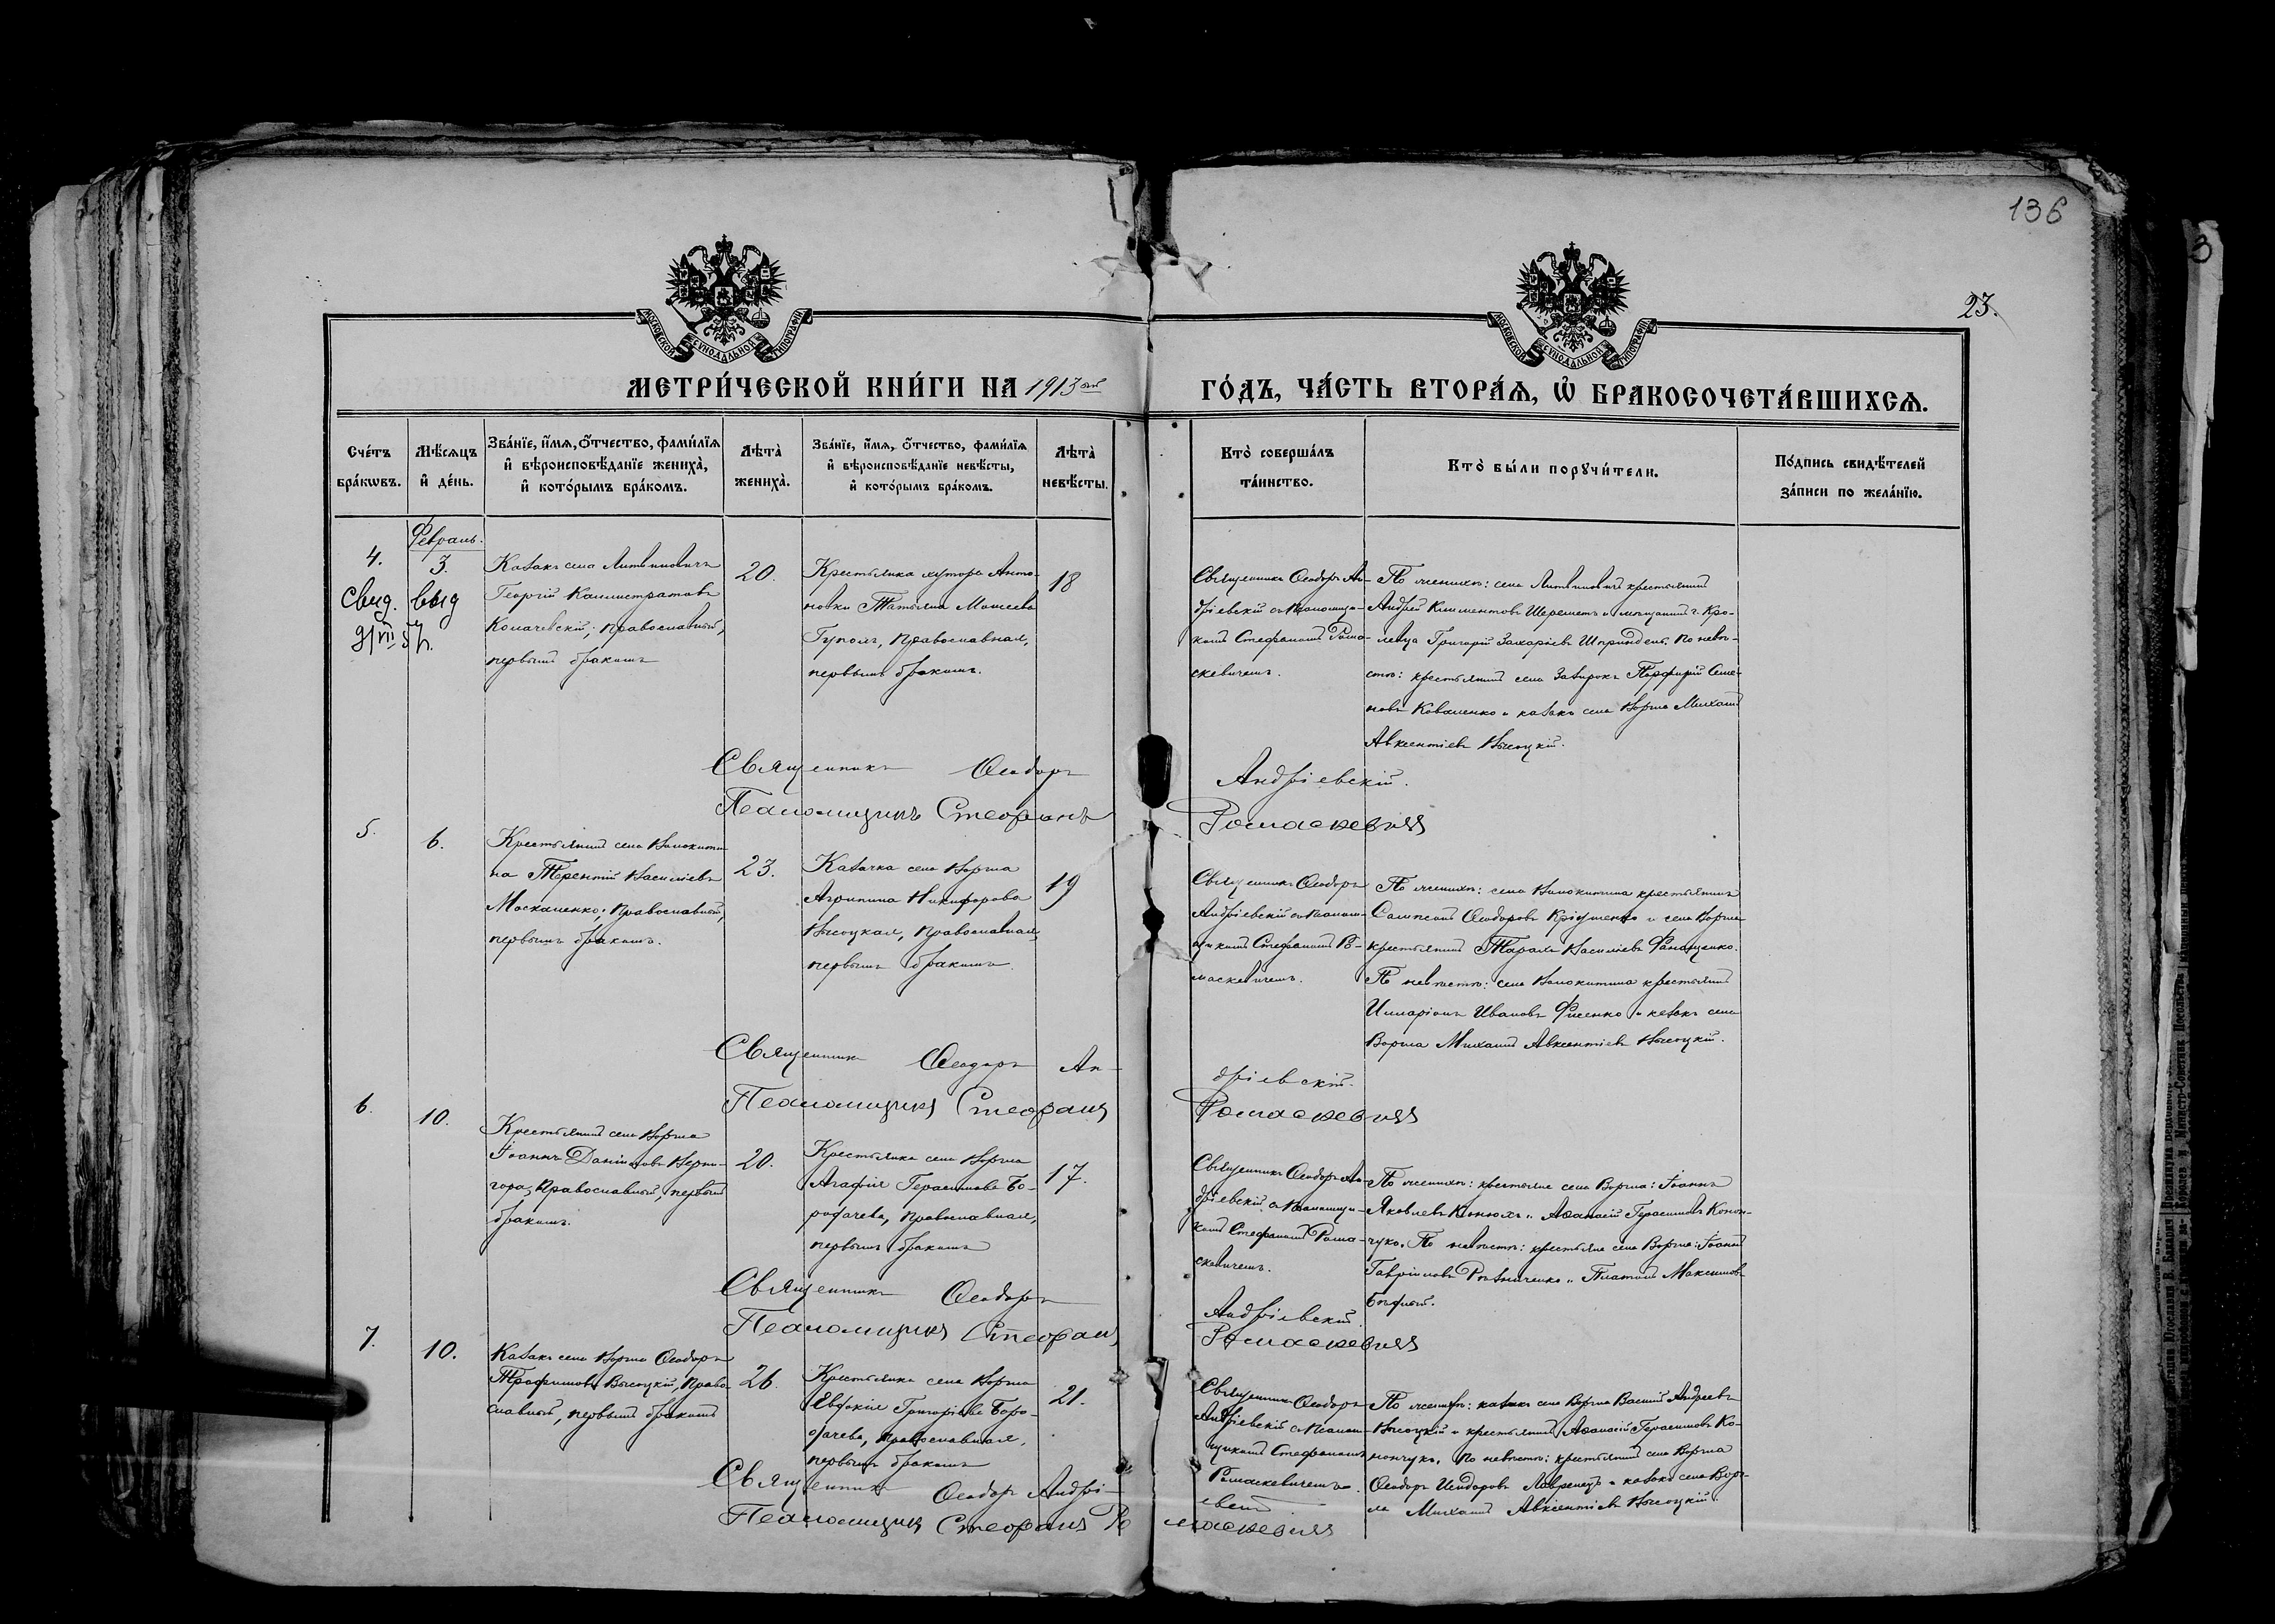 136
3
23.
МОСКОВСКОЙ СѴНОДАЛЬНОЙ ТИПОГРАФІИ
МОСКОВСКОЙ СѴНОДАЛЬНОЙ ТИПОГРАФІИ
МЕТРИ́ЧЕСКОЙ КНИ́ГИ НА 1913ый
ГО́ДЪ, ЧА́СТЬ ВТОРА́Ѧ, Ѽ БРАКОСОЧЕТА́ВШИХСѦ.
Сче́тъ бра́кѡвъ.
Мѣ́сѧцъ и҆ де́нь.
Зва́нїе, и҆́мѧ, о҆́тчество, фами́лїѧ и҆ вѣроисповѣ́данїе жениха̀, и҆ кото́рымъ бра́комъ.
Лѣта̀ жениха̀.
Зва́нїе, и҆́мѧ, о҆́тчество, фами́лїѧ и҆ вѣроисповѣ́данїе невѣ́сты, и҆ кото́рымъ бра́комъ.
Лѣта̀ невѣ́сты.
Кто̀ соверша́лъ та́инство.
Кто̀ бы́ли порꙋчи́тели.
По́дпись свидѣ́телей за́писи по жела́нїю.
Февраль.
4.
3.
Свид. выд
9/VII 57.
Козакъ села Литвиновичъ
Георгій Каллистратовъ
Компачевскій, православный,
первымъ бракомъ
20.
Крестьянка хутора Анто-
новки Татьяна Моисеева
Гуполъ, православная,
первымъ бракомъ.
18
Священникъ Ѳеодоръ Ан-
дріевскій съ псаломщи-
комъ Стефаномъ Рома-
скевичемъ.
По женихѣ: села Литвиновичъ крестьянинъ
Андрей Климентовъ Шереметъ и мѣщанинъ г. Кро-
левца Григорій Захаріевъ Шпринденъ. По невѣ-
стѣ: крестьянинъ села Зазирокъ Порфирій Семе-
новъ Коваленко и козакъ села Воргла Михаилъ
Авксентіевъ Высоцкій.
Священникъ Ѳеодоръ Андріевскій.
Псаломщикъ Стефанъ Ромаскевичъ
5.
6.
Крестьянинъ села Волокити-
на Терентій Василіевъ
Москаленко, православный,
первымъ бракомъ.
23.
Козачка села Воргла
Агрипина Никифорова
Высоцкая, православная,
первымъ бракомъ.
19
Священникъ Ѳеодоръ
Андріевскій съ псалом-
щикомъ Стефаномъ Ро-
маскевичемъ.
По женихѣ: села Волокитина крестьянинъ
Сампсонъ Ѳеодоровъ и села Воргла
крестьянинъ Тарасъ Василіевъ
По невѣстѣ: села Волокитина крестьянинъ
Илларіонъ Ивановъ Фисенко и козакъ села
Воргла Михаилъ Авксентіевъ Высоцкій.
Священникъ Ѳеодоръ Андріевскій.
Псаломщикъ Стефанъ Ромаскевичъ
6.
10.
Крестьянинъ села Воргла
Іоаннъ Даніиловъ Верни-
гора, православный, первымъ
бракомъ.
20.
Крестьянка села Воргла
Агафія Герасимова Бо-
родачева, православная,
первымъ бракомъ
17.
Священникъ Ѳеодоръ Ан-
дріевскій съ псаломщи-
комъ Стефаномъ Рома-
скевичемъ.
По женихѣ: крестьяне села Воргла: Іоаннъ
Яковлевъ Конюхъ и Аѳанасій Герасимовъ Конон-
чукъ. По невѣстѣ: крестьяне села Воргла: Іоаннъ
Гавріиловъ Рѣзниченко и Платонъ Максимовъ
Бѣдный.
Священникъ Ѳеодоръ Андріевскій.
Псаломщикъ Стефанъ Ромаскевичъ
7.
10.
Козакъ села Воргла Ѳеодоръ
Трофимовъ Высоцкій, право-
славный, первымъ бракомъ
26.
Крестьянка села Воргла
Евдокія Григоріева Боро-
дачева, православная,
первымъ бракомъ
21.
Священникъ Ѳеодоръ
Андріевскій съ псалом-
щикомъ Стефаномъ
Ромаскевичемъ.
По женихѣ: козакъ села Воргла Василій Андреевъ
Высоцкій и крестьянинъ Аѳанасій Герасимовъ Ко-
нончукъ. По невѣстѣ: крестьянинъ села Воргла
Ѳеодоръ Исидоровъ Лавренецъ и козакъ села Ворг-
ла Михаилъ Авксентіевъ Высоцкій.
Священникъ Ѳеодоръ Андріевскій
Псаломщикъ Стефанъ Ромаскевичъ